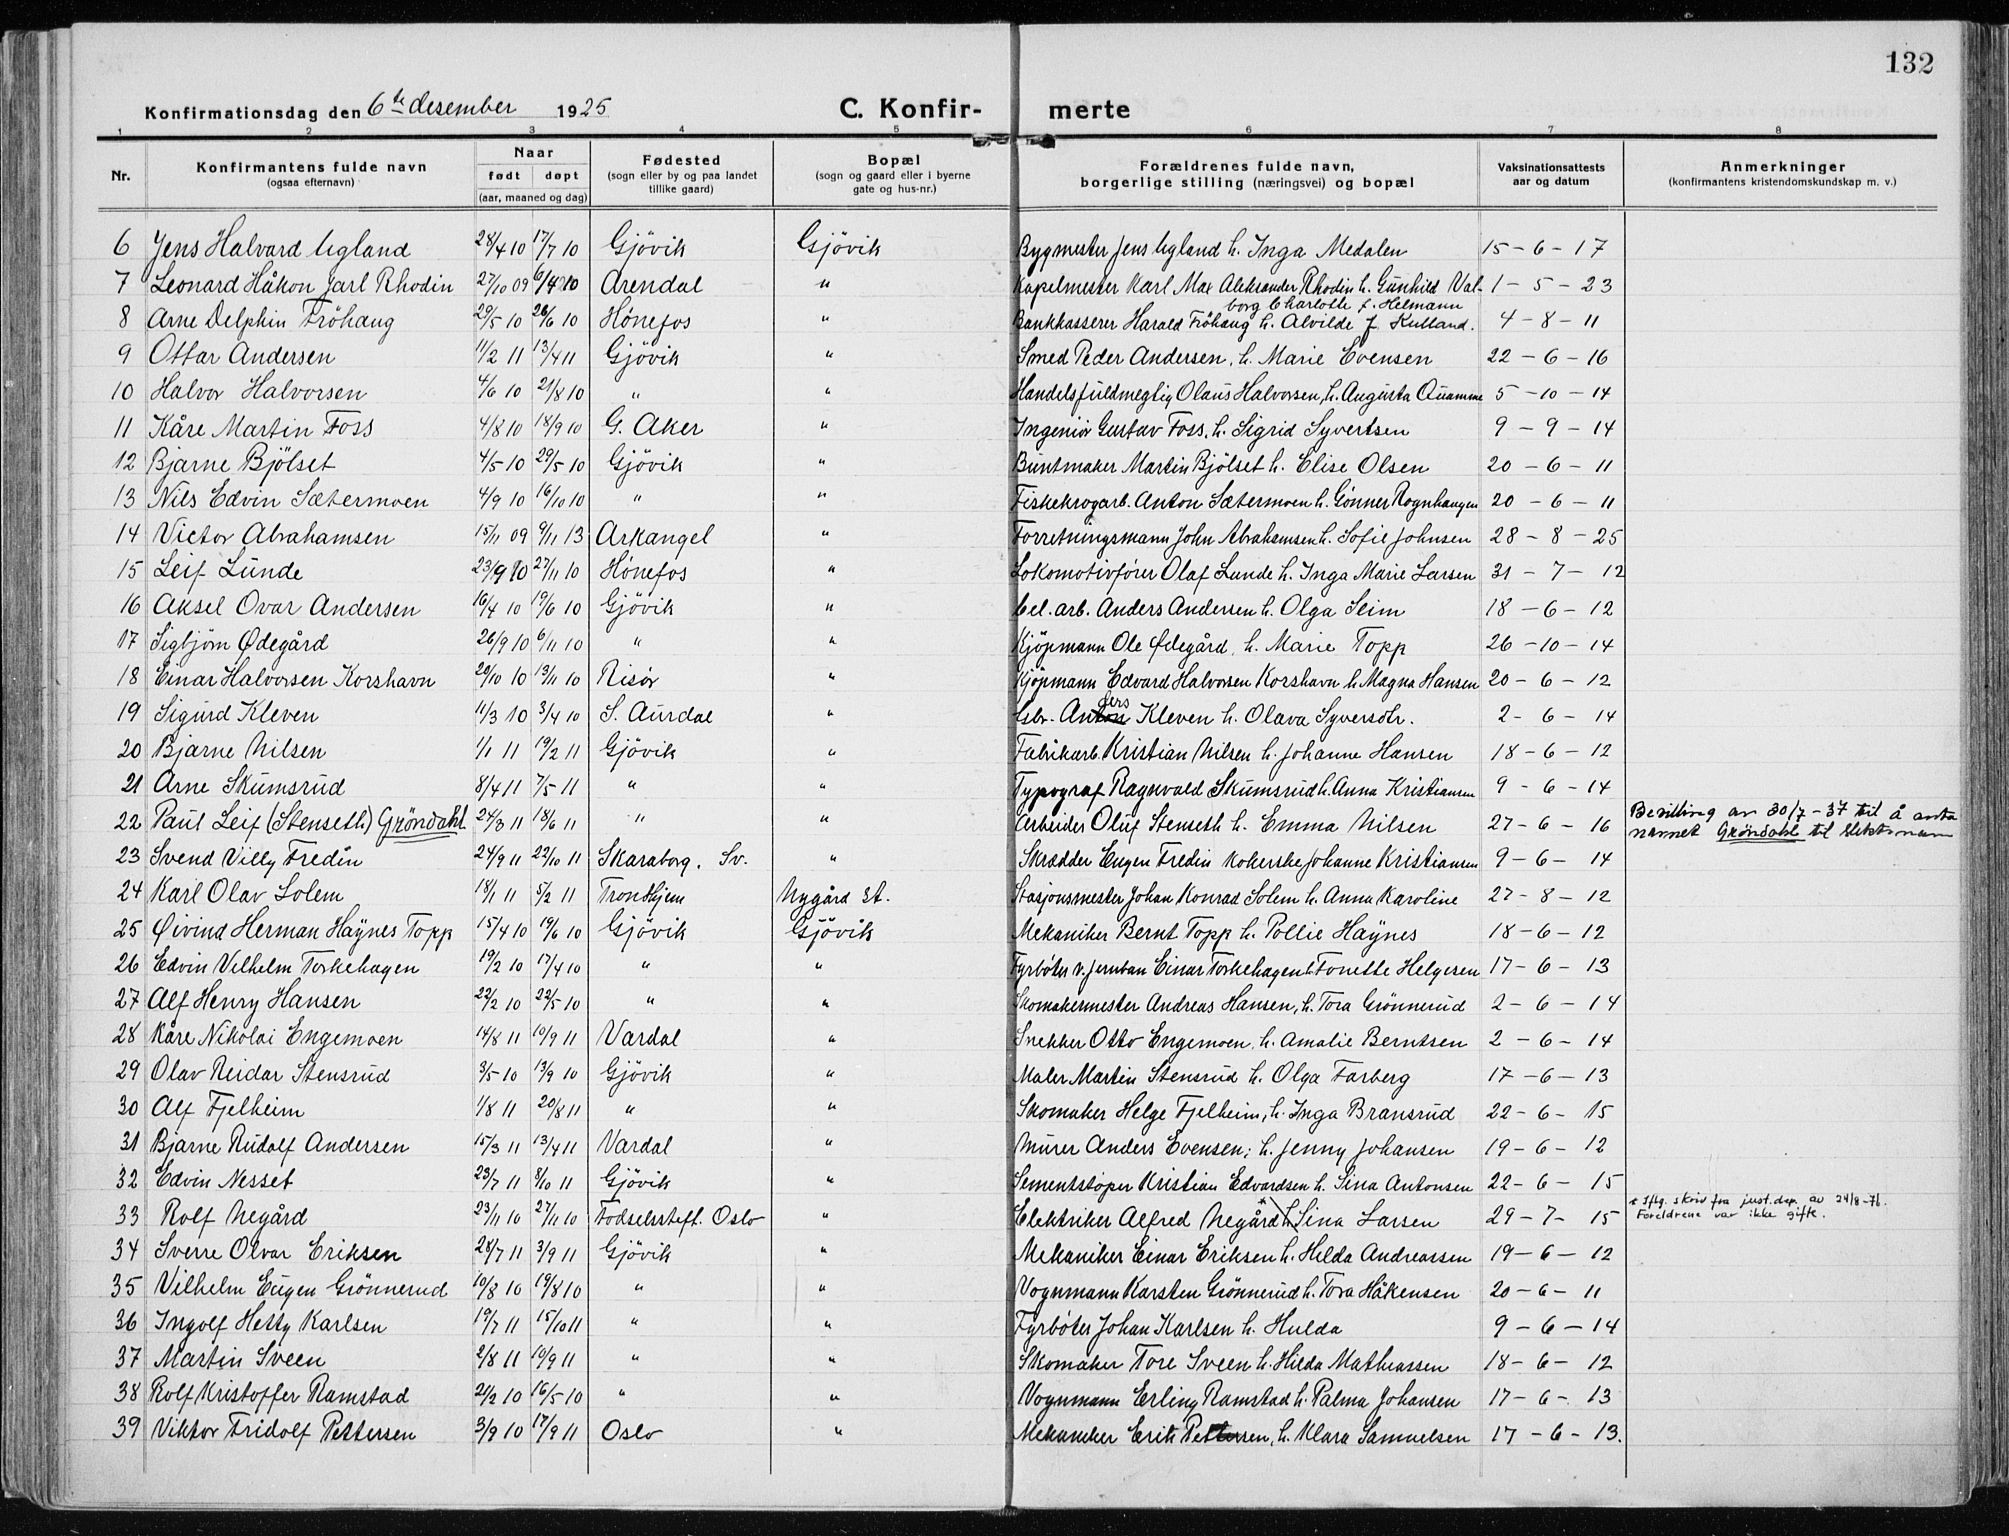 132
Konfirmationsdag den 6te desember 1925 C. Konfir- merte
1 2 3 4 5 6 7 8
Nr. Konfirmantens fulde navn (ogsaa efternavn) Naar født døpt (aar, maaned og dag) Fødested (sogn eller by og paa landet tillike gaard) Bopæl (sogn og gaard eller i byerne gate og hus-nr.) Forældrenes fulde navn, borgerlige stilling (næringsvei) og bopæl Vaksinationsattests aar og datum Anmerkninger (konfirmantens kristendomskundskap m. v.)
6 Jens Halvard Ugland 28/4 10 17/7 10 Gjövik Gjövik Bygmester Jens Ugland h. Inga Medalen 15-6-17
7 Leonard Håkon Jarl Rhodin 27/10 09 6/4 10 Arendal " Kapelmester Karl Max Aleksander Rhodin h. Gunhild Val- 1-5-23
borg Charlotte f. Helmann
8 Arne Delphin Fröhaug 29/5 10 26/6 10 Hönefos " Bankkasserer Harald Fröhaug h. Alvilde f. Kulland. 4-8-11
9 Ottar Andersen 11/2 11 13/4 11 Gjövik " Smed Peder Andersen, h. Marie Evensen 22-6-16
10 Halvor Halvorsen 4/6 10 21/8 10 " " Handelsfuldmegtig Olaus Halvorsen, h. Augusta Quamme 5-10-14
11 Kåre Martin Foss 4/8 10 18/9 10 G. Aker " Ingeniör Gustav Foss, h. Sigrid Syvertsen 9-9-14
12 Bjarne Bjölset 4/5 10 29/5 10 Gjövik " Buntmaker Martin Bjölset h. Elise Olsen 20-6-11
13 Nils Edvin Sætermoen 4/9 10 16/10 10 " " Fiskekrogarb. Anton Sætermoen h. Gönner Rognhaugen 20-6-11
14 Victor Abrahamsen 15/11 09 9/11 13 Arkangel " Forretningsmann John Abrahamsen h. Sofie Johnsen 28-8-25
15 Leif Lunde 23/9 10 27/11 10 Hönefos " Lokomotivförer Olaf Lunde h. Inga Marie Larsen 31-7-12
16 Aksel Ovar Andersen 16/4 10 19/6 10 Gjövik " Cel. arb. Anders Andersen h. Olga Seim 18-6-12
17 Sigbjörn Ødegård 26/9 10 6/11 10 " " Kjöpmann Ole Ødegård, h. Marie Topp 26-10-14
18 Einar Halvorsen Korshavn 20/10 10 13/11 10 Risör " Kjöpmann Edvard Halvorsen Korshavn h. Magna Hansen 20-6-12
19 Sigurd Kleven 11/3 10 3/4 10 S. Aurdal " Anders Kleven h. Olava Syversdtr. 2-6-14
20 Bjarne Nilsen 1/1 11 19/2 11 Gjövik " Fabrikarb. Kristian Nilsen h. Johanne Hansen 18-6-12
21 Arne Skumsrud 8/4 11 7/5 11 " " Typograf Ragnvald Skumsrud h. Anna Kristiansen 9-6-14
22 Paul Leif (Stenseth) Gröndahl 24/3 11 18/6 11 " " Arbeider Oluf Stenseth h. Emma Nilsen 27-6-16 Bevilling av 30/7-37 til å anta
navnet Gröndahl til slektsnavn
23 Svend Villy Fredin 24/9 11 22/10 11 Skaraborg. Sv. " Skrædder Eugen Fredin Kokerske Johanne Kristiansen 9-6-14
24 Karl Olav Solem 18/1 11 5/2 11 Trondhjem Nygård st. Stasjonsmester Johan Konrad Solem h. Anna Karoline 27-8-12
25 Øivind Herman Haynes Topp 15/4 10 19/6 10 Gjövik Gjövik Mekaniker Bernt Topp h. Pollie Haynes 18-6-12
26 Edvin Vilhelm Torkehagen 19/2 10 17/4 10 " " Fyrböter v. jernban Einar Torkehagen h. Tonette Helgesen 17-6-13
27 Alf Henry Hansen 22/2 10 22/5 10 " " Skomakermester Andreas Hansen, h. Tora Grönnerud 2-6-14
28 Kåre Nikolai Engemoen 14/8 11 10/9 11 Vardal " Snekker Otto Engemoen, h. Amalie Berntsen 2-6-14
29 Olav Reidar Stensrud 3/5 10 13/9 10 Gjövik " Maler Martin Stensrud h. Olga Farberg 17-6-13
30 Alf Fjelheim 1/8 11 20/8 11 " " Skomaker Helge Fjelheim, h. Inga Bransrud 22-6-15
31 Bjarne Rudolf Andersen 15/3 11 13/4 11 Vardal " Murer Anders Evensen; h. Jenny Johansen 19-6-12
32 Edvin Nesset 23/7 11 8/10 11 Gjövik " Sementstöper Kristian Edvardsen h. Sina Antonsen 22-6-15
33 Rolf Negård 23/11 10 27/11 10 Födselsstift. Oslo " Elektriker Alfred Negård * h. Sina Larsen 29-7-15 * Iflg. skriv fra just.dep. av 24/8-76.
Foreldrene var ikke gifte.
34 Sverre Olvar Eriksen 28/7 11 3/9 11 Gjövik " Mekaniker Einar Eriksen h. Hilda Andreassen 19-6-12
35 Vilhelm Eugen Grönnerud 10/3 10 19/8 10 " " Vognmann Karsten Grönnerud h. Tora Håkensen 20-6-11
36 Ingolf Hetty Karlsen 19/7 11 15/10 11 " " Fyrböter Johan Karlsen h. Hulda 9-6-14
37 Martin Sveen 2/8 11 10/9 11 " " Skomaker Tore Sveen h. Hilda Mathiassen 18-6-12
38 Rolf Kristoffer Ramstad 21/2 10 16/5 10 " " Vognmann Erling Ramstad h. Palma Johansen 17-6-13
39 Viktor Fridolf Pettersen 3/9 10 17/9 11 Oslo " Mekaniker Erik Pettersen, h. Klara Samuelsen 17-6-13.